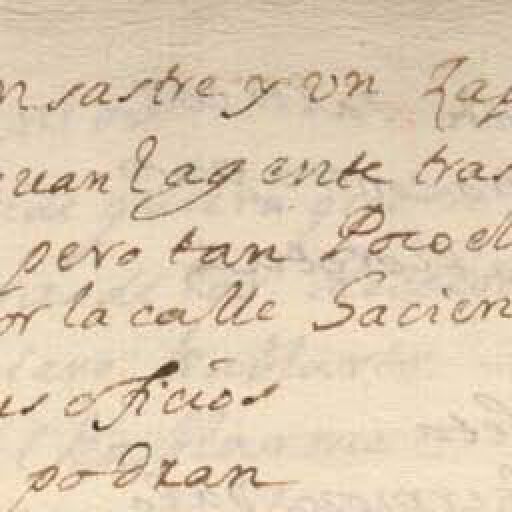 n sastre y vn Zap
uan la gente tras
pero tan Poco el
or la calle Sacien
us oficios
podran